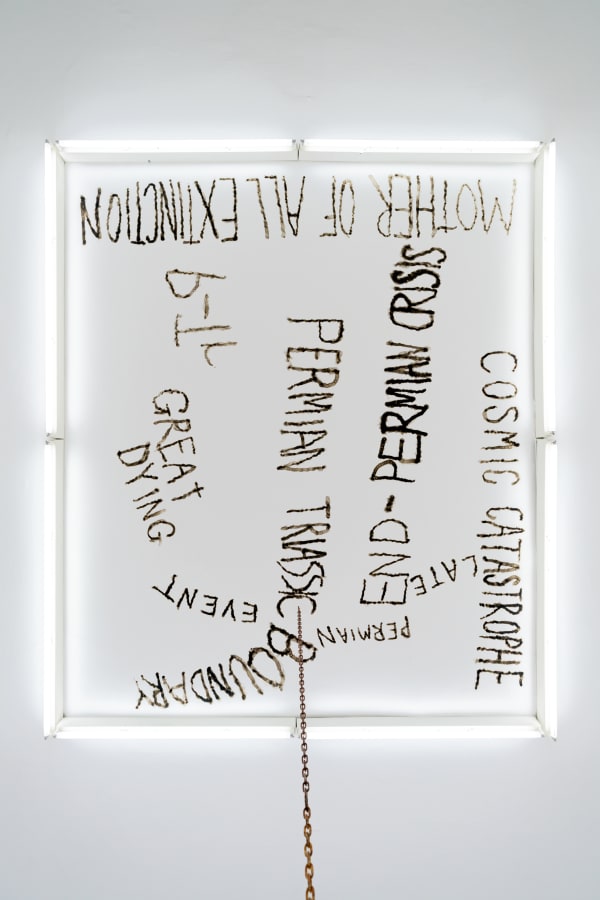 MOTHER OF ALL EXTINCTION
P-Tr
GREAT
DYING
PERMIAN TRIASSIC
BOUNDARY
END-PERMIAN CRISIS
COSMIC CATASTROPHE
LATE PERMIAN EVENT